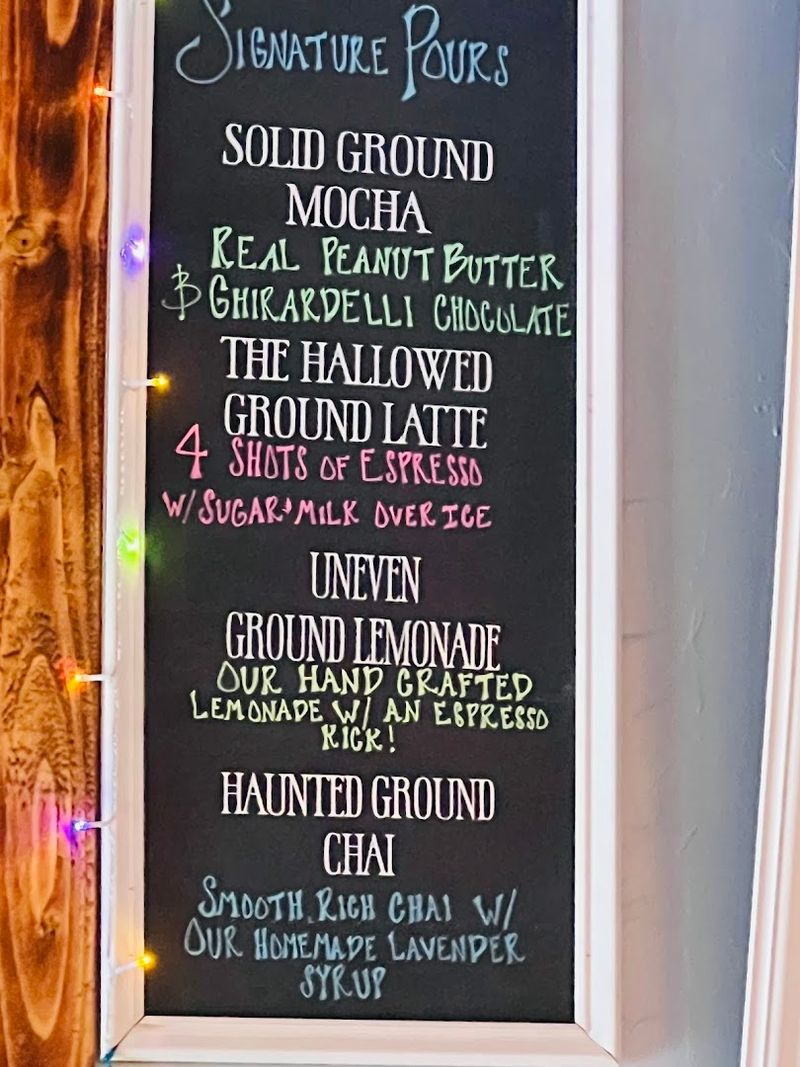 SIGNATURE POURS
SOLID GROUND
MOCHA
REAL PEANUT BUTTER
& GHIRARDELLI CHOCOLATE
THE HALLOWED
GROUND LATTE
4 SHOTS OF ESPRESSO
W/ SUGAR & MILK OVER ICE
UNEVEN
GROUND LEMONADE
OUR HAND CRAFTED
LEMONADE W/ AN ESPRESSO
KICK!
HAUNTED GROUND
CHAI
SMOOTH, RICH CHAI W/
OUR HOMEMADE LAVENDER
SYRUP